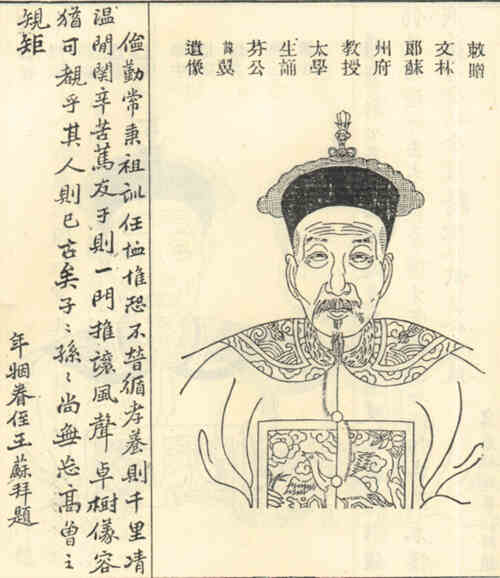 敕贈
文林
郎蘇
州府
教授
太學
生誦
芬公
諱翼
遺像
儉勤常秉祖訓任恤惟恐不替循孝養則千里凊
温閒関辛苦篤友于則一門推讓風聲卓樹儀容
猶可覩乎其人則已古矣子〻孫〻尚無忘高曾之
規矩
年姻眷侄王蘇拜題